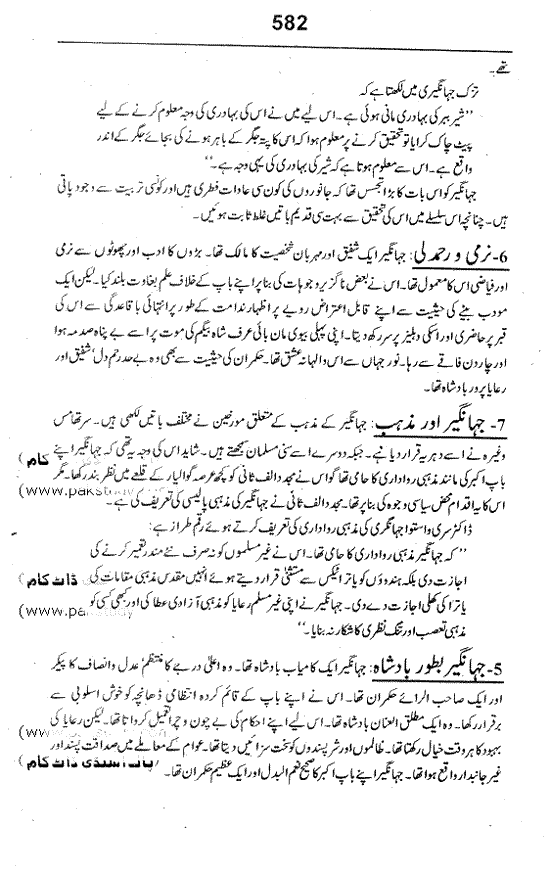 582
تھے۔
تزک جہانگیری میں لکھتا ہے کہ
”شیر ببر کی بہادری مانی ہوئی ہے۔ اس لیے میں نے اس کی بہادری کی وجہ معلوم کرنے کے لیے
پیٹ چاک کرایا تو تحقیق کرنے پر معلوم ہوا کہ اس کا پتہ جگر کے باہر ہونے کی بجائے جگر کے اندر
واقع ہے۔ اس سے معلوم ہوتا ہے کہ شیر کی بہادری کی یہی وجہ ہے۔“
جہانگیر کو اس بات کا بڑا تجسس تھا کہ جانوروں کی کون سی عادات فطری ہیں اور کونسی تربیت سے وجود پاتی
ہیں۔ چنانچہ اس سلسلے میں اس کی تحقیق سے بہت سی قدیم باتیں غلط ثابت ہوئیں۔
6- نرمی و رحمدلی: جہانگیر ایک شفیق اور مہربان شخصیت کا مالک تھا۔ بڑوں کا ادب اور چھوٹوں سے نرمی
اور فیاضی اس کا معمول تھا۔ اس نے بعض ناگزیر وجوہات کی بنا پر اپنے باپ کے خلاف علم بغاوت بلند کیا۔ لیکن ایک
مودب بیٹے کی حیثیت سے اپنے قابل اعتراض رویے پر اظہار ندامت کے طور پر انتہائی باقاعدگی سے اس کی
قبر پر حاضری اور اسکی دہلیز پر سر رکھ دیتا۔ اپنی پہلی بیوی مان بائی عرف شاہ بیگم کی موت پر اسے بے پناہ صدمہ ہوا
اور چار دن فاقے سے رہا۔ نور جہاں سے اس والہانہ عشق تھا۔ حکمران کی حیثیت سے بھی وہ بے حد رحم دل‘ شفیق اور
رعایا پرور بادشاہ تھا۔
7- جہانگیر اور مذہب: جہانگیر کے مذہب کے متعلق مورخین نے مختلف باتیں لکھی ہیں۔ سر تھامس
وغیرہ نے اسے دہریہ قرار دیا ہے۔ جبکہ دوسرے اسے سنی مسلمان سمجھتے ہیں۔ شاید اس کی وجہ یہ تھی کہ جہانگیر اپنے
باپ اکبر کی مانند مذہبی رواداری کا حامی تھا گو اس نے مجدد الف ثانی کو کچھ عرصہ گوالیار کے قلعے میں نظر بند رکھا۔ مگر
اس کا یہ اقدام محض سیاسی وجوہ کی بنا پر تھا۔ مجدد الف ثانی نے جہانگیر کی مذہبی پالیسی کی تعریف کی ہے۔
ڈاکٹر سری واستوا جہانگیر کی مذہبی رواداری کی تعریف کرتے ہوئے رقم طراز ہے:
”کہ جہانگیر مذہبی رواداری کا حامی تھا۔ اس نے غیر مسلموں کو نہ صرف نئے مندر تعمیر کرنے کی
اجازت دی بلکہ ہندوؤں کو یاترا ٹیکس سے مستثنیٰ قرار دیتے ہوئے انہیں مقدس مذہبی مقامات کی
یاترا کی کھلی اجازت دے دی۔ جہانگیر نے اپنی غیر مسلم رعایا کو مذہبی آزادی عطا کی اور کبھی کسی کو
مذہبی تعصب اور تنگ نظری کا شکار نہ بنایا۔“
5- جہانگیر بطور بادشاہ: جہانگیر ایک کامیاب بادشاہ تھا۔ وہ اعلیٰ درجے کا منتظم‘ عدل و انصاف کا پیکر
اور ایک صاحب الرائے حکمران تھا۔ اس نے اپنے باپ کے قائم کردہ انتظامی ڈھانچہ کو خوش اسلوبی سے
برقرار رکھا۔ وہ ایک مطلق العنان بادشاہ تھا۔ اس لیے اپنے احکام کی بے چون و چرا تعمیل کرواتا تھا۔ لیکن رعایا کی
بہبود کا ہر وقت خیال رکھتا تھا۔ ظالموں اور شر پسندوں کو سخت سزائیں دیتا تھا۔ عوام کے معاملے میں صداقت پسند اور
غیر جانبدار واقع ہوا تھا۔ جہانگیر اپنے باپ اکبر کا صحیح نعم البدل اور ایک عظیم حکمران تھا۔